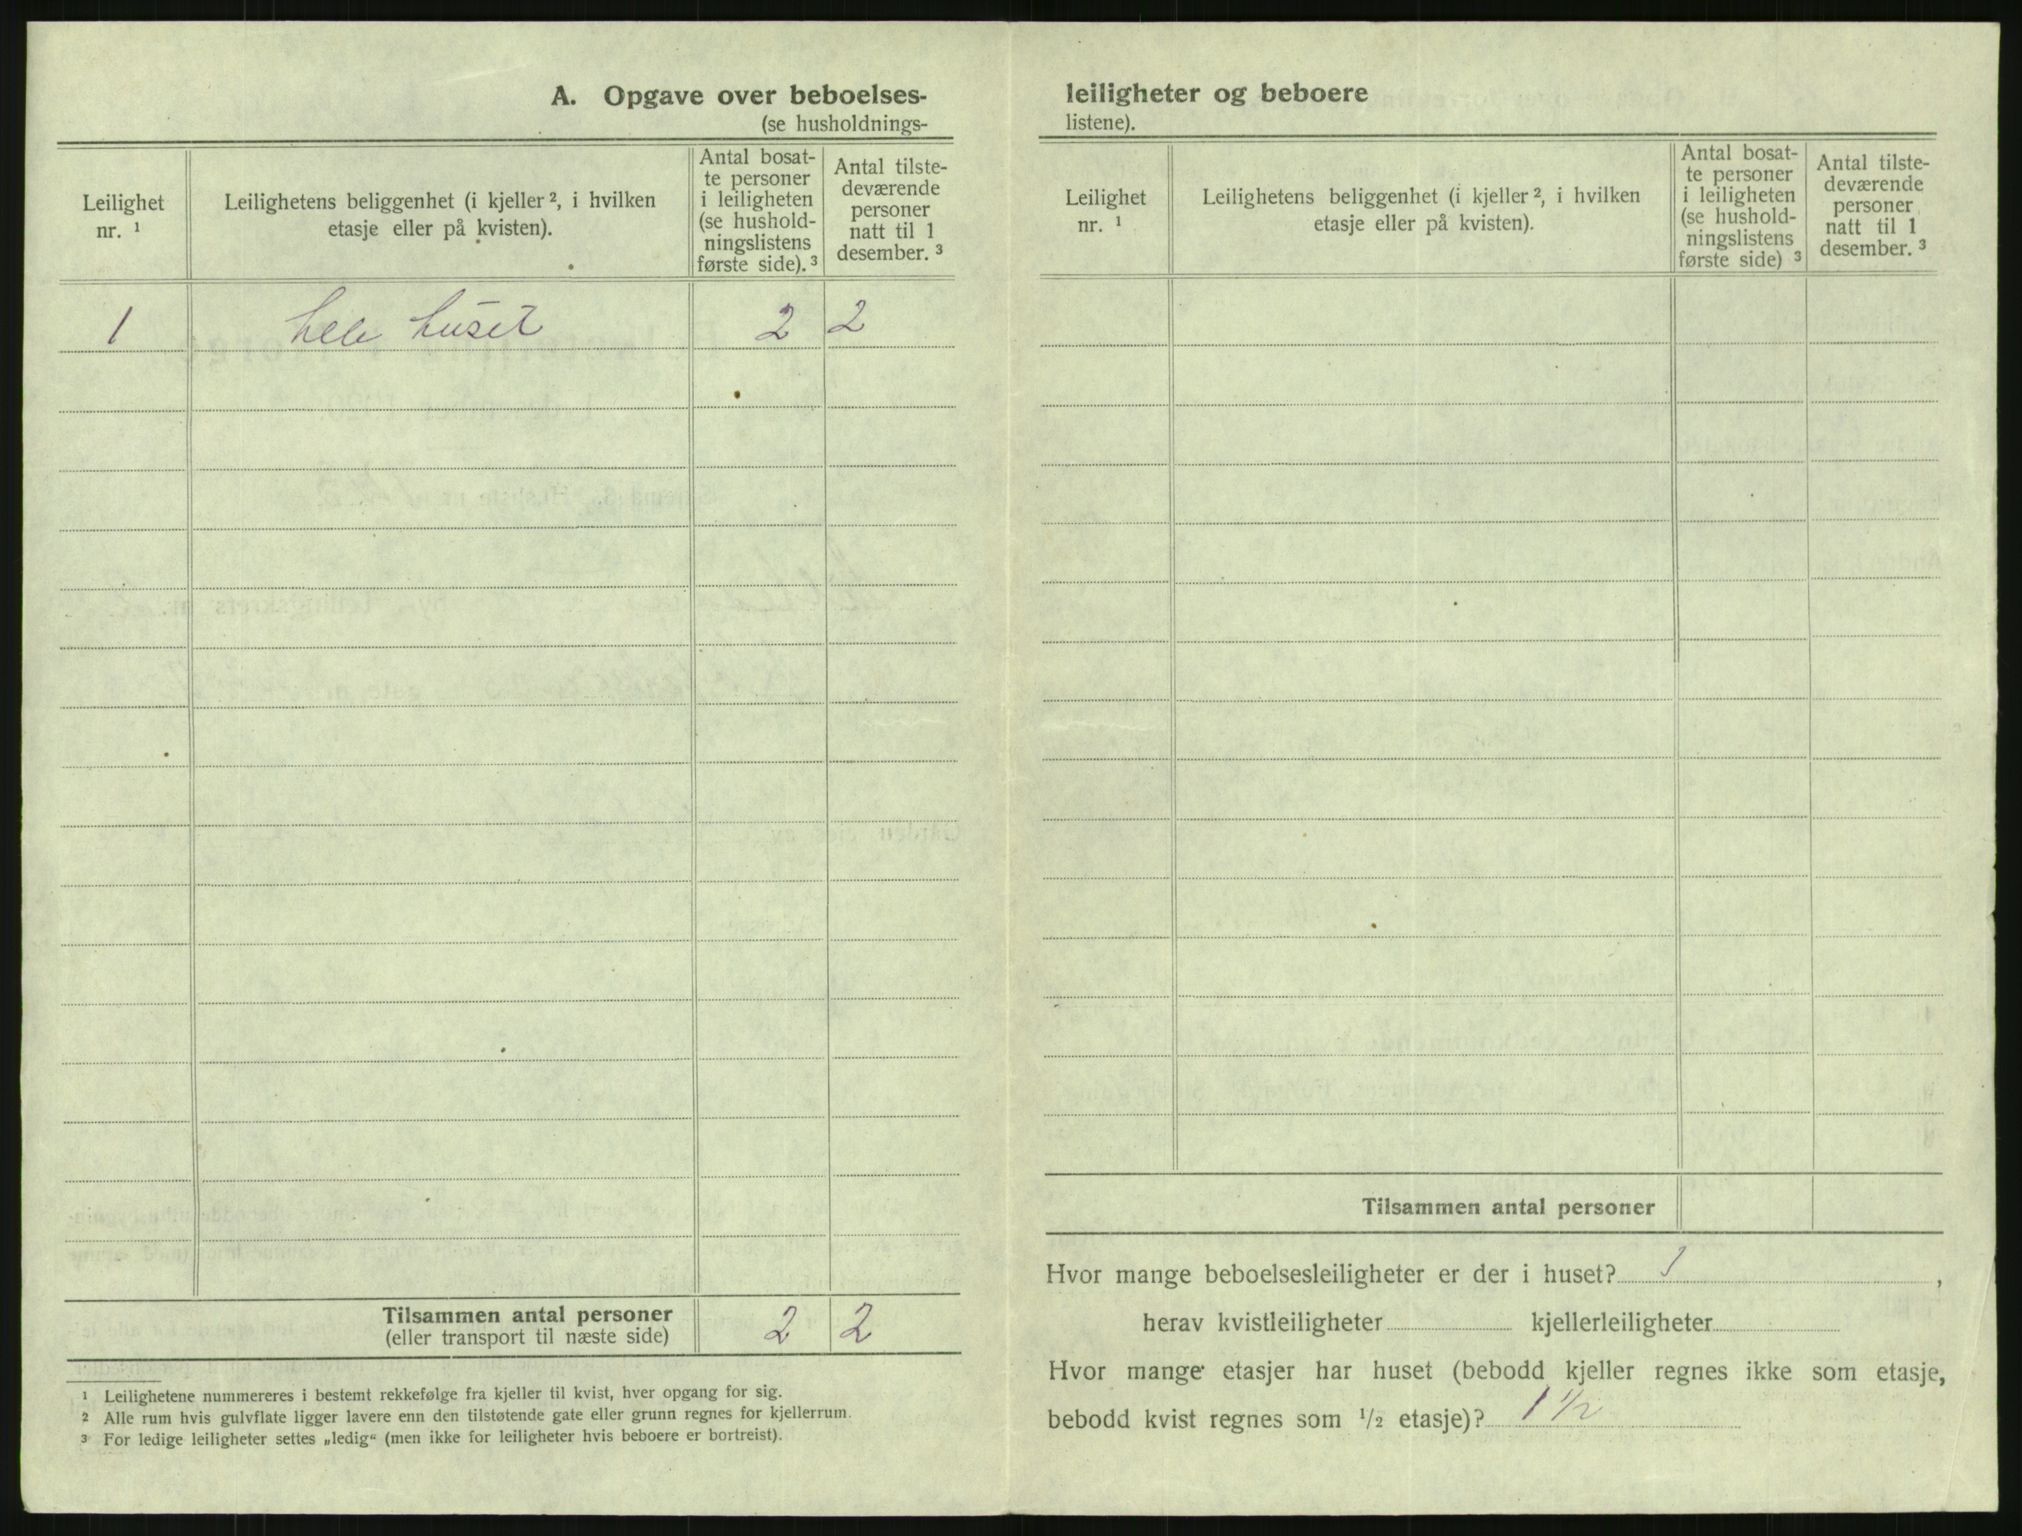 A. Opgave over beboelses-
(se husholdnings-
Leilighet
nr. ¹
Leilighetens beliggenhet (i kjeller ², i hvilken
etasje eller på kvisten).
Antal bosat-
te personer
i leiligheten
(se hushold-
ningslistens
første side). ³
Antal tilste-
deværende
personer
natt til 1
desember. ³
1 hele huset 2 2
Tilsammen antal personer
(eller transport til næste side)
2 2
¹ Leilighetene nummereres i bestemt rekkefølge fra kjeller til kvist, hver opgang for sig.
² Alle rum hvis gulvflate ligger lavere enn den tilstøtende gate eller grunn regnes for kjellerrum.
³ For ledige leiligheter settes „ledig“ (men ikke for leiligheter hvis beboere er bortreist).
leiligheter og beboere
listene).
Leilighet
nr. ¹
Leilighetens beliggenhet (i kjeller ², i hvilken
etasje eller på kvisten).
Antal bosat-
te personer
i leiligheten
(se hushold-
ningslistens
første side) ³
Antal tilste-
deværende
personer
natt til 1
desember. ³
Tilsammen antal personer
Hvor mange beboelsesleiligheter er der i huset? 1,
herav kvistleiligheter kjellerleiligheter
Hvor mange etasjer har huset (bebodd kjeller regnes ikke som etasje,
bebodd kvist regnes som ½ etasje)? 1 ½